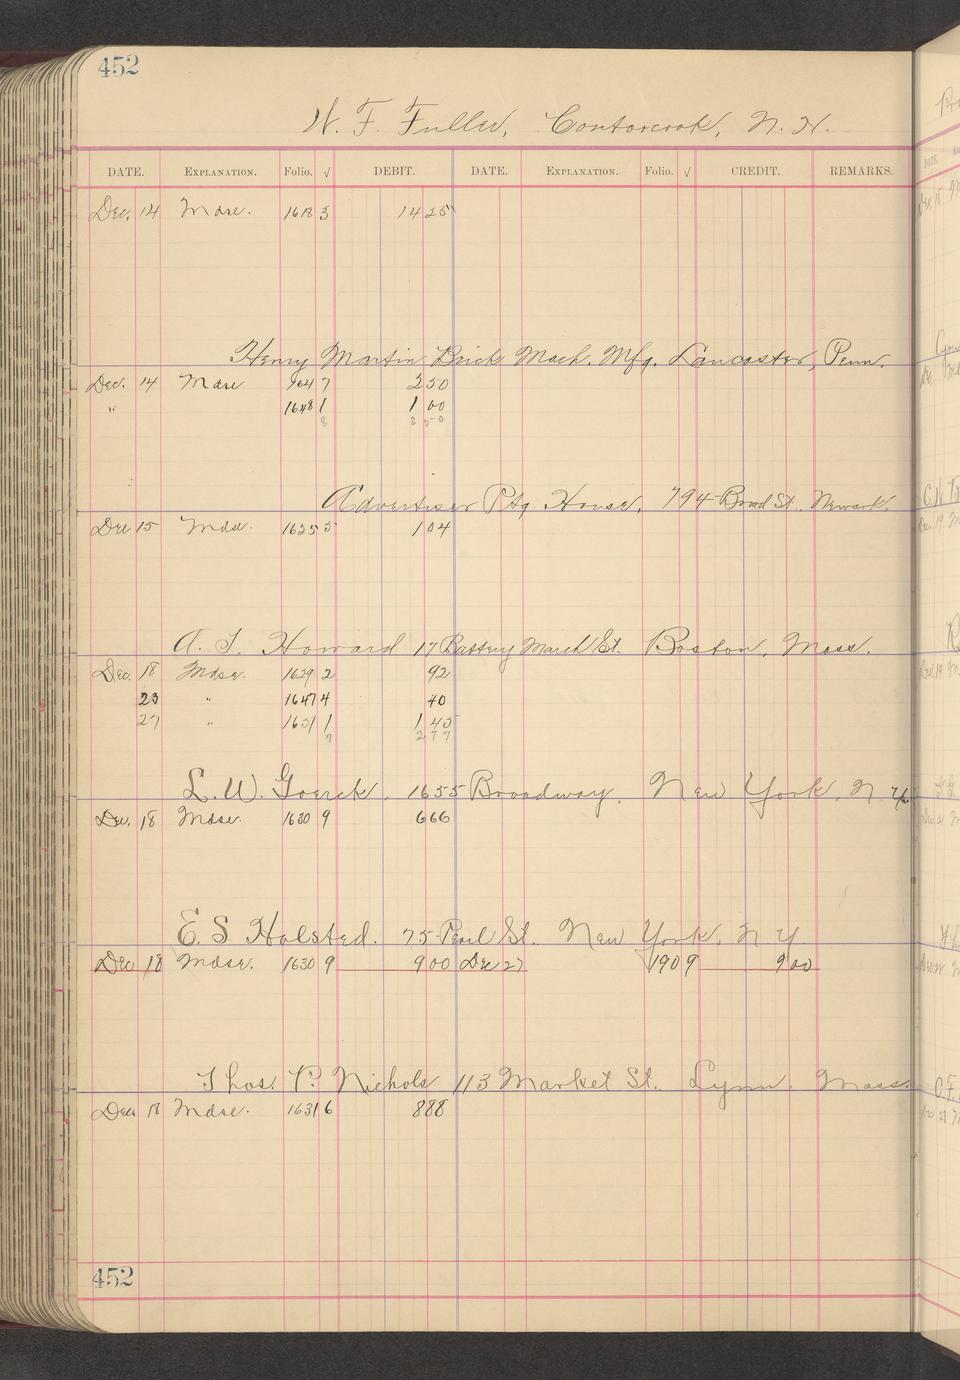 452
W. F. Fuller, Contoocook, N. H.
DATE. EXPLANATION. Folio. √ DEBIT. DATE. EXPLANATION. Folio. √ CREDIT. REMARKS.
Dec. 14 Mdse. 1618 3 14 25
Henry Martin Brick Mach. Mfg. Lancaster, Penn.
Dec. 14 Mdse 7 2 50
" 1648 1 1 00
8 3 50
Advertiser Ptg. House, 794 Broad St. Newark.
Dec 15 Mdse. 1625 5 1 04
A. T. Howard 17 Battery March St. Boston, Mass.
Dec. 18 Mdse. 1629 2 92
23 " 1647 4 40
27 " 1651 1 1 45
7 2 77
L. W. Goerck, 1655 Broadway, New York, N. Y.
Dec. 18 Mdse. 1630 9 6 66
E. S. Halsted. 75 Pearl St. New York, N Y
Dec 18 Mdse. 1630 9 9 00 Dec 27 190 9 9 00
Thos. P. Nichols 113 Market St. Lynn, Mass.
Dec. 18 Mdse. 1631 6 8 88
452